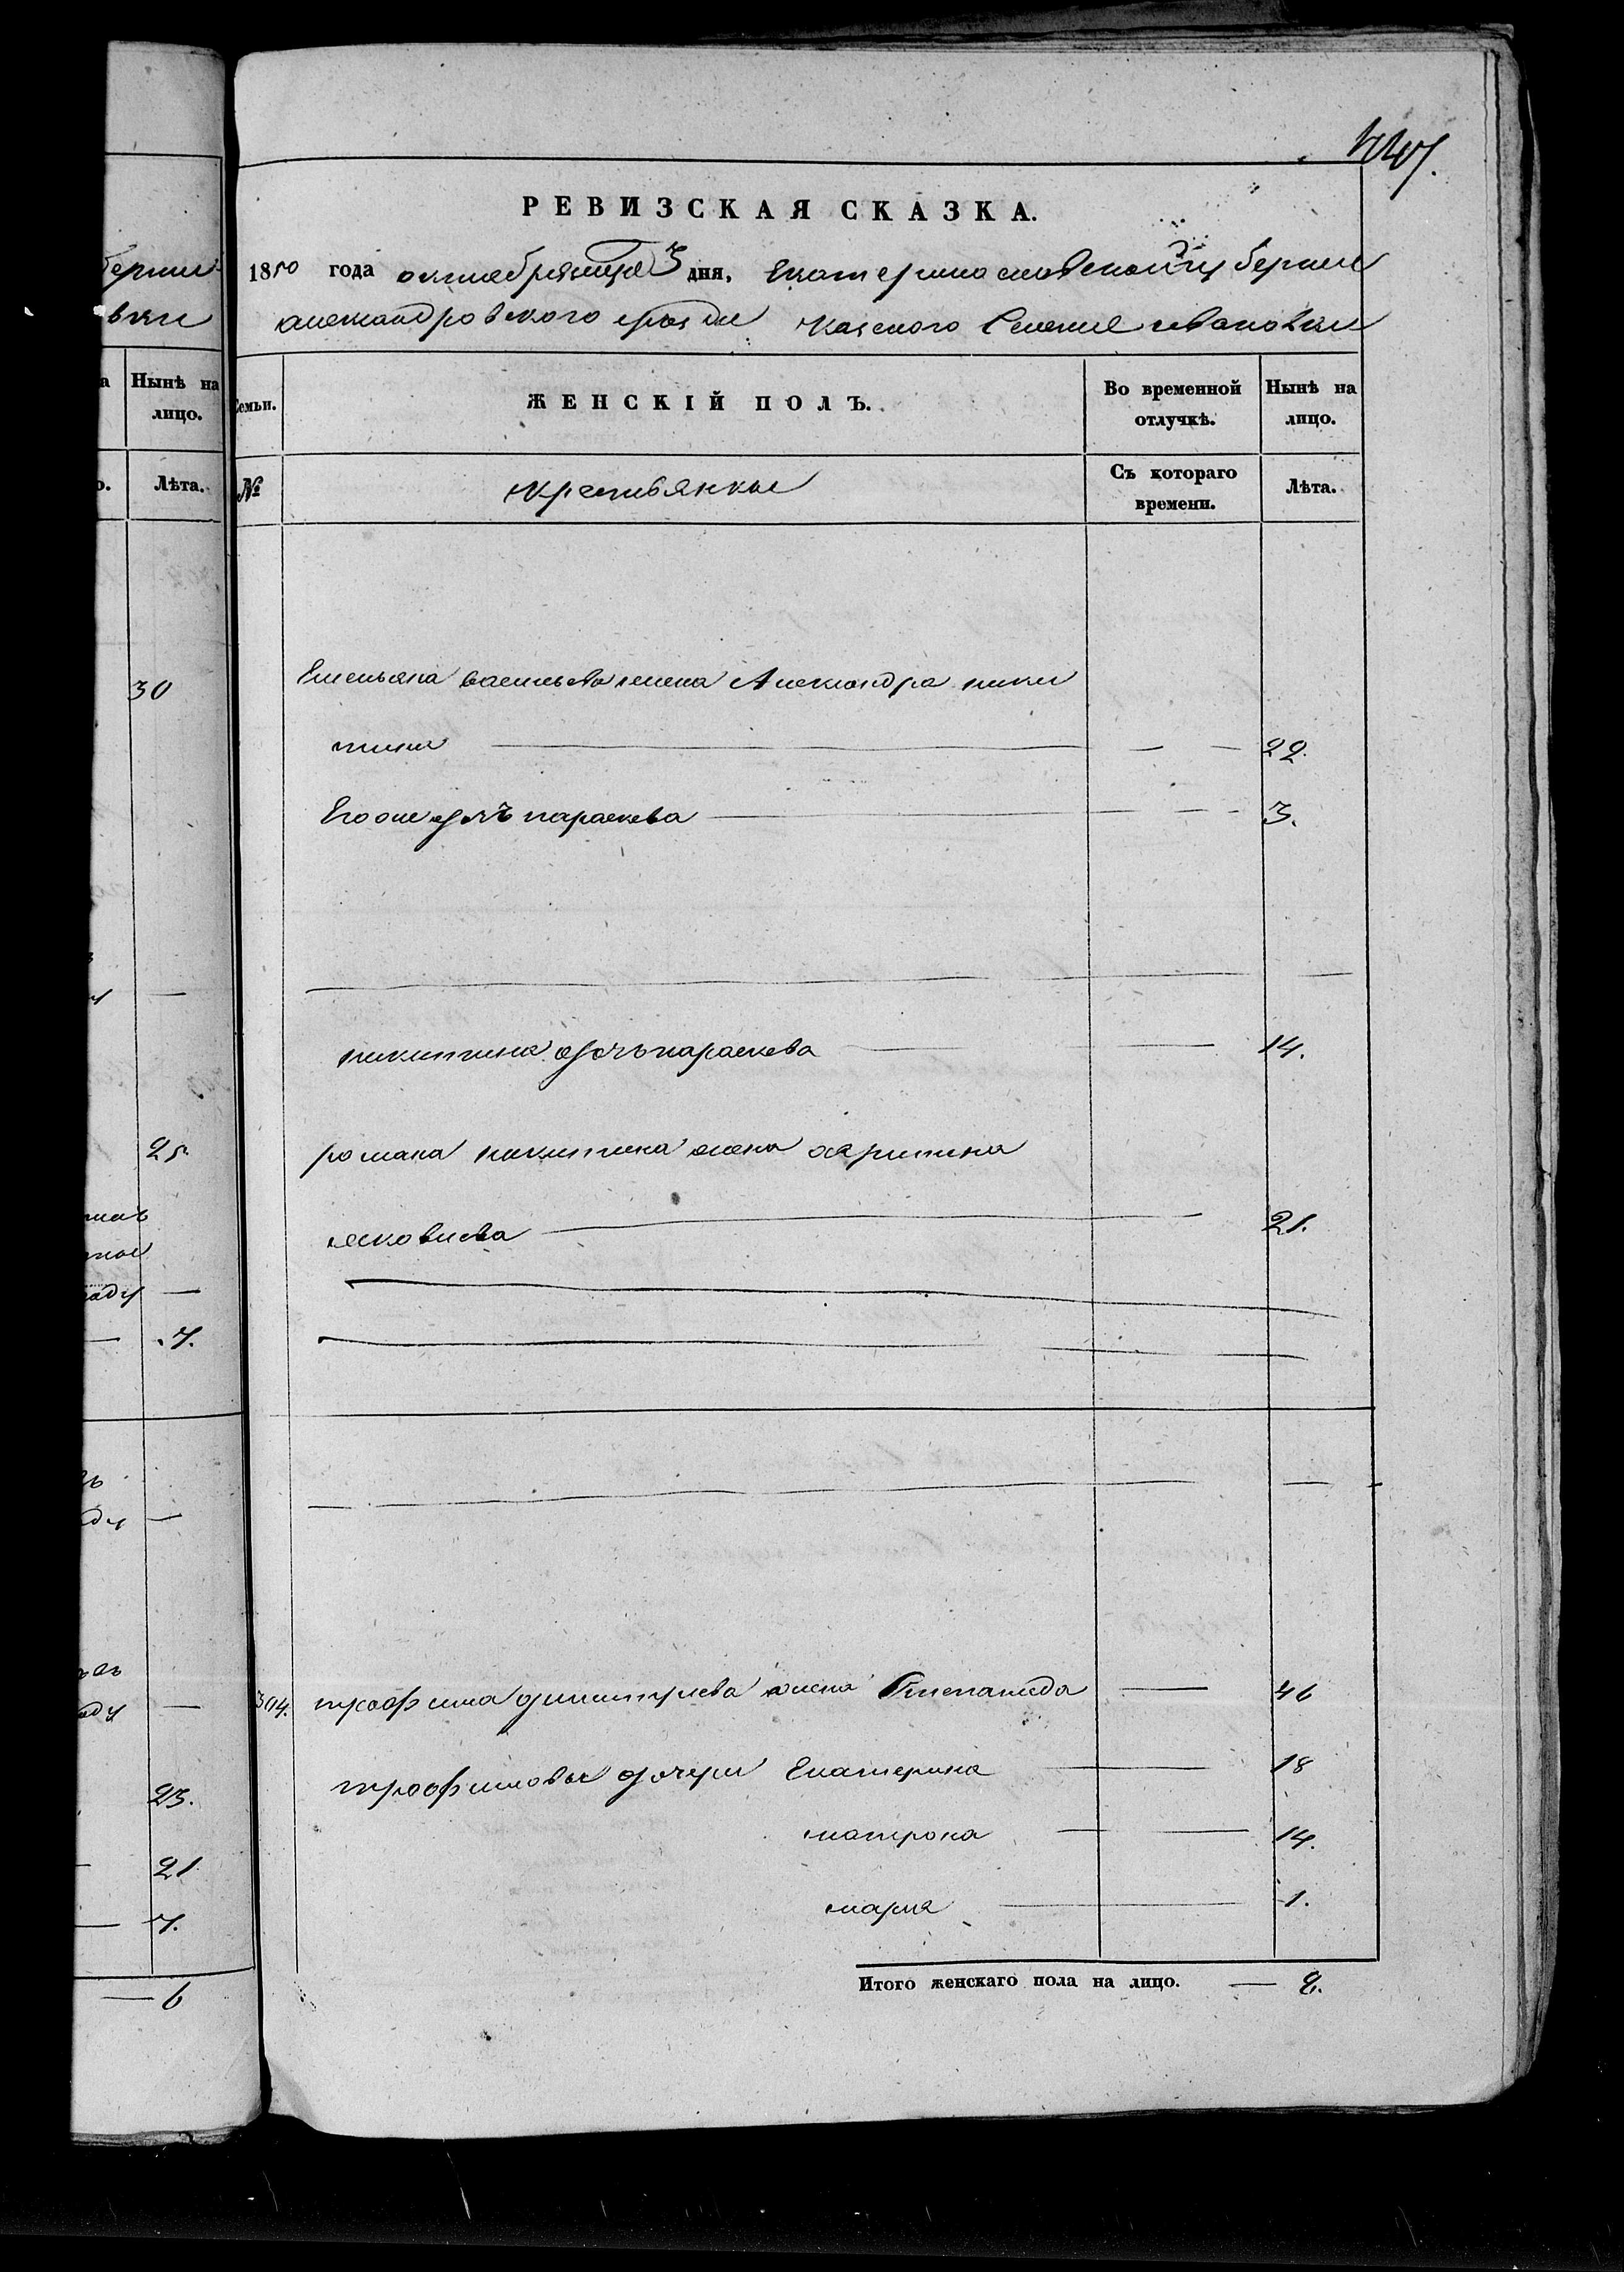 447.
РЕВИЗСКАЯ СКАЗКА.
1850 года октября месяца 3 дня, Екатеринославской губернии
александровского уезда казеного Селения ивановки
Семьи. ЖЕНСКІЙ ПОЛЪ. Во временной отлучкѣ. Нынѣ на лицо.
№ крестьянки Съ котораго времени. Лѣта.
Емельяна васильева жена Александра ники
тина — — — 22.
Его же дочъ параскева — — — 3.
никитина дочъ параскева — — 14.
романа никитина жена
яковлева — 21.
394. трофима димитриева жена Степанида — 46
трофимовы дочери Екатерина — 18
матрона — — 14.
мария — 1.
Итого женскаго пола на лицо. — 8.
бернии
вки
Нынѣ на
лицо.
Лѣта.
30
25.
7.
23.
21.
7.
— 6